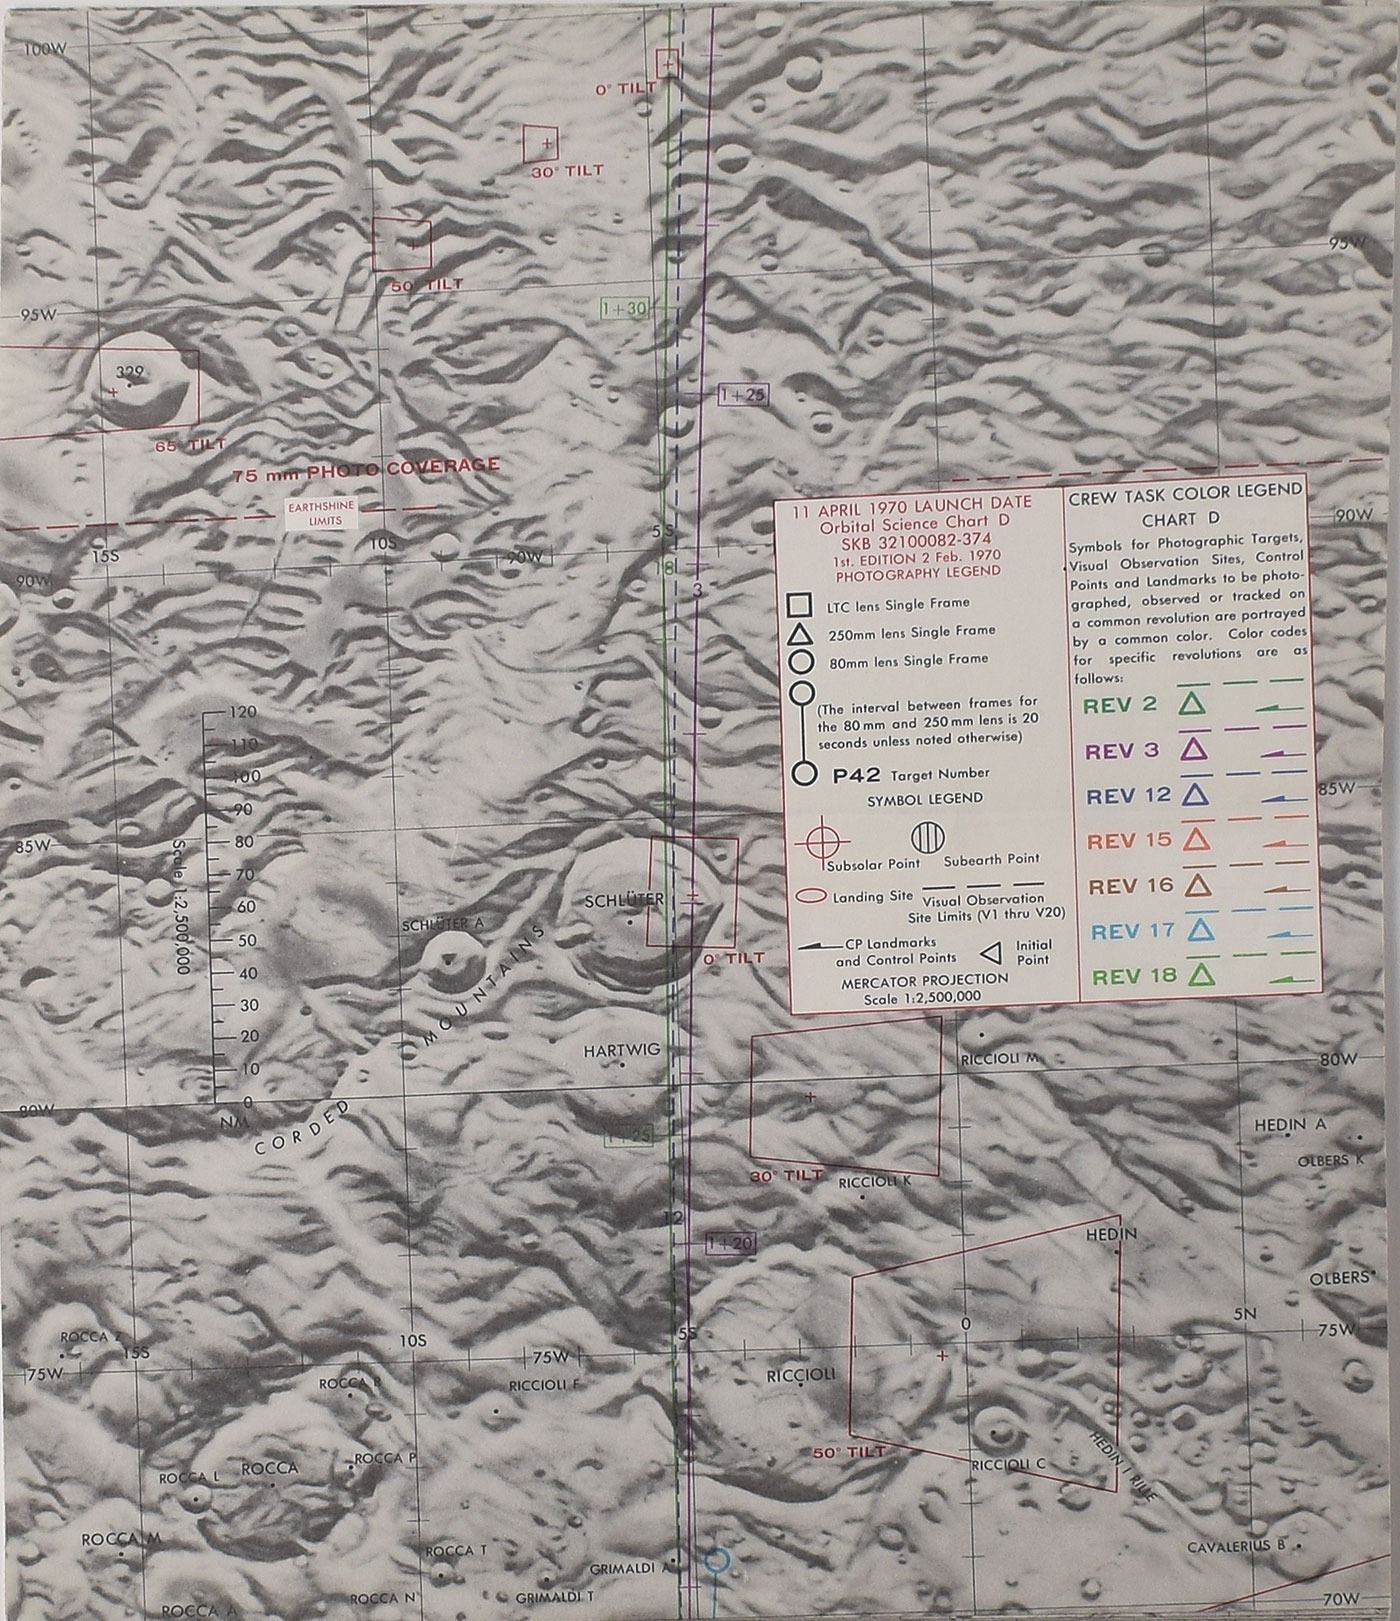 100W
0° TILT
30° TILT
50° TILT
95W
95W
1+30
329
1+25
65° TILT
75 mm PHOTO COVERAGE
EARTHSHINE
LIMITS
15S
10S
90W
5S
90W
90W
18
3
11 APRIL 1970 LAUNCH DATE
Orbital Science Chart D
SKB 32100082-374
1st. EDITION 2 Feb. 1970
PHOTOGRAPHY LEGEND
LTC lens Single Frame
250mm lens Single Frame
80mm lens Single Frame
(The interval between frames for
the 80 mm and 250 mm lens is 20
seconds unless noted otherwise)
P42 Target Number
SYMBOL LEGEND
Subsolar Point
Subearth Point
Landing Site
Visual Observation
Site Limits (V1 thru V20)
CP Landmarks
and Control Points
Initial
Point
MERCATOR PROJECTION
Scale 1:2,500,000
CREW TASK COLOR LEGEND
CHART D
Symbols for Photographic Targets,
Visual Observation Sites, Control
Points and Landmarks to be photo-
graphed, observed or tracked on
a common revolution are portrayed
by a common color. Color codes
for specific revolutions are as
follows:
REV 2
REV 3
REV 12
REV 15
REV 16
REV 17
REV 18
120
110
100
90
80
70
60
50
40
30
20
10
0
NM
Scale 1:2,500,000
85W
85W
SCHLÜTER
SCHLÜTER A
0° TILT
CORDED MOUNTAINS
HARTWIG
RICCIOLI M
80W
80W
1+25
HEDIN A
OLBERS K
30° TILT
RICCIOLI K
12
1+20
HEDIN
OLBERS
5N
0
75W
5S
ROCCA Z
15S
10S
75W
75W
RICCIOLI F
ROCCA R
RICCIOLI
50° TILT
RICCIOLI C
HEDIN I RILLE
ROCCA L
ROCCA
ROCCA P
ROCCA M
ROCCA T
GRIMALDI A
CAVALERIUS B
ROCCA A
ROCCA N
GRIMALDI T
70W